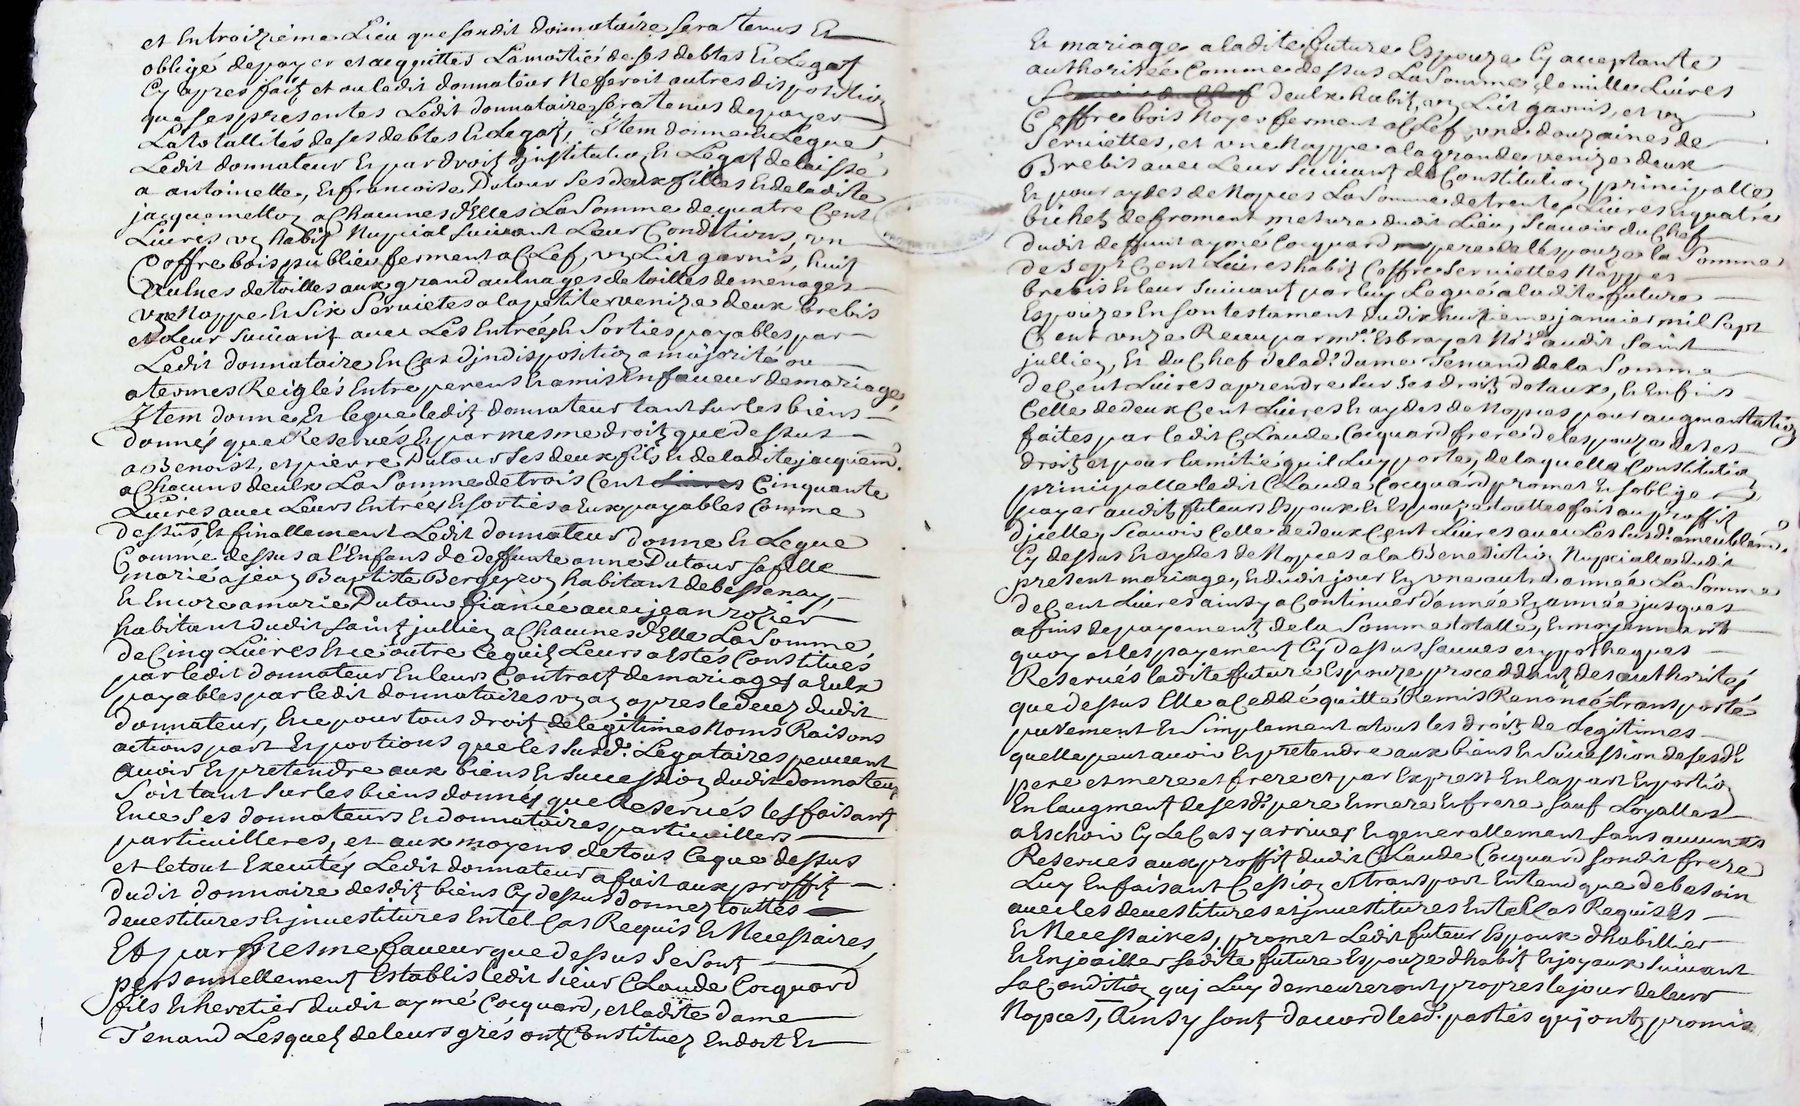 et Entroizieme Lieu que sondit donnataire sera tenus Et
obligé de payer et acquitter La moitié de ses debtes Et Legatz
Cy apres faitz et ou ledit donnateur ne feroit autres disposition
que ses presentes Ledit donnataire sera tenus de payer
La totallités de ses debtes Et Legatz, Item donne Et Legue
Ledit donnateur Et par droitz djnstitution Et Legatz delaisse
a antoinette, Et francoise Dutour ses deux filles Et de ladite
jacquemetton a Chacunes d'Elles La Somme de quatre Cent
Livres un habitz Nupcial suivant Leur Conditions, un
Coffre bois publier ferment a Clef, un Lict garnis, huit
aulnes de toilles aux grand aulnages de toilles de menages
une Nappe Et Six Servietes a la petite venize deux brebis
et Leur suivant avec Les Entrées Et Sorties payables par
Ledit donnataire En Cas djndisposition a majorité ou
a termes Reiglés Entre perens Et amis En faveur de mariage,
Item donne Et legue ledit donnateur tant sur les biens
donnés que Reservés Et par mesme droitz que dessus
a Benoist, et pierre Dutour ses deux fils Et de ladite jacquem.
a Chacuns deulx La Somme de trois Cent Livres Cinquante
Livres avec Leurs Entrées Et sorties a Eux payables Comme
dessus Et finallement Ledit donnateur donne Et Legue
Comme dessus a l'Enfans de deffunte anne Dutour sa fille
marié a jean Baptiste Bergeyron habitant de bessenay,
Et Encore a marie Dutour fiancée avec jean rozier
habitant dudit saint jullien a Chacunes d'Elle La Somme
de Cinq Livres Et ce outre Ce quil Leurs a Estés Constitués
par ledit donnateur En leurs Contratz de mariages a Eulx
payables par ledit donnataires un an apres le decez dudit
donnateur, Et ce pour tous droitz de legitimes Noms Raisons
actions part Et portions que les susd. Legataires peuvent
avoir Et pretendre aux biens Et Succession dudit donnateur
Soit tant sur les biens donnés que Reservés les faisant
En ce Ses donnateurs Et donnataires particuillers
particuilleres, et aux moyens de tous Ce que dessus
et le tout Executés Ledit donnateur a fait aux proffitz
dudit donnaire desditz biens Cy dessus donnez touttes
devestitures Et jnvestitures En tel Cas Requis Et Necessaires,
Et par Mesme faveur que dessus Se sont
personnellement Establis ledit Sieur Claude Cocquard
fils Et heretier dudit aymé Cocquard, et ladite dame
Tenand Lesquelz de leurs grés ont Constituez En dot Et
Et mariage a ladite future Espouze Cy acceptante
authorisée Comme dessus La Somme de mille Livres
deulx habitz, un Lict garnis, et un
Coffre bois Noyer ferment a Clef une douzaines de
Serviettes, et une Nappe a la grande venize deux
Brebis avec Leur Suivant de Constitution principalles
Et pour aydes de Nopces La Somme de trente Livres Et quatre
bichetz de froment mesure dudit Lieu, Scavoir du Chef
dudit deffunt aymé Cocquard pere de lespouze la Somme
de Sept Cent Livres habitz Coffre Serviettes Nappes
brebis Et leur Suivant par luy Legué a ladite future
Espouze En son testament du dix huitieme janvier mil Sept
Cent unze Receu par me. Esbrayat Nore. audit Saint
jullien, Et du Chef de lad. dame Tenand de la Somme
de Cent Livres a prendre sur ses droitz dotaux, Et Enfins
Celle de deux Cent Livres Et aydes de Nopces pour augmentation
faites par ledit Claude Cocquard frere de lespouze de ses
droitz et pour lamitié quil Luy porte, de laquelle Constitution
principalle ledit Claude Cocquard promet Et soblige
payer auditz futeurs Espoux Et Espouze touttes fois au proffit
djcelle, Scavoir Celle de deux Cent Livres avec Les susd. ameublem.
Cy dessus Et aydes de Nopces a la Benediction Nupcialle dudit
present mariage, Et dudit jour En une autre année La Somme
de Cent Livres ainsy a Continuer d'année En année jusques
a fins de payementz de la Somme totalle, Et moyennant
quoy et les payementz Cy dessus sauves et ypotheques
Reservés ladite future Espouze proceddant des authorités
que dessus Elle a Ceddé quitté Remis Renoncé transporté
purement Et Simplement a tous les droitz de Legitimes
quelle peut avoir Et pretendre aux biens Et Succession de sesd.
pere et mere et frere et par Exprest En la part Et portion
En l'augment de sesd. pere Et mere Et frere, sauf Loyalles
a Eschoir Cy Le Cas y arrive, Et generallement sans aucunes
Reserves aux proffitz dudit Claude Cocquard sondit frere
Luy En faisant Cession Et transport En tend que de besoin
avec les devestitures et jnvestitures En tel Cas Requises
Et Necessaires, promet Ledit futeur Espoux d'habillier
Et Enjoailler sadite future Espouze d'habitz Et joyaux Suivant
sa Condition quj Luy demeureront propres le jour de leurs
Nopces, Ainsy sont d'accord lesd. parties quj ont promis